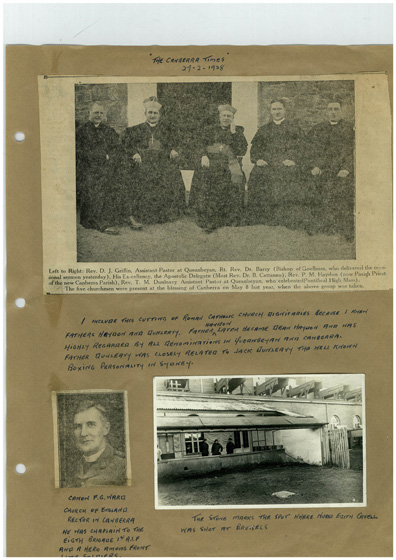 "THE CANBERRA TIMES"
27-2-1928
Left to Right: Rev. D. J. Griffin, Assistant Pastor at Queanbeyan, Rt. Rev. Dr. Barry (Bishop of Goulburn, who delivered the
sermon yesterday), His Excellency, the Apostolic Delegate (Most Rev. Dr. B. Cattaneo), Rev. P. M. Haydon (now Parish Priest
of the new Canberra Parish), Rev. T. M. Dunleavy Assistant Pastor at Queanbeyan, who celebrated Pontifical High Mass).
The five churchmen were present at the blessing of Canberra on May 8 last year, when the above group was taken.
I INCLUDE THIS CUTTING OF ROMAN CATHOLIC CHURCH DIGNITARIES BECAUSE I KNEW
FATHERS HAYDON AND DUNLEAVY. FATHER HAYDON LATER BECAME DEAN HAYDON AND WAS
HIGHLY REGARDED BY ALL DENOMINATIONS IN QUEANBEYAN AND CANBERRA.
FATHER DUNLEAVY WAS CLOSELY RELATED TO JACK DUNLEAVY THE WELL KNOWN
BOXING PERSONALITY IN SYDNEY.
CANON F.G. WARD
CHURCH OF ENGLAND
RECTOR IN CANBERRA
HE WAS CHAPLAIN TO THE
EIGTH BRIGADE 1ST A.I.F
AND A HERO AMONG FRONT
LINE SOLDIERS.
THE STONE MARKS THE SPOT WHERE NURSE EDITH CAVELL
WAS SHOT AT BRUSSELS